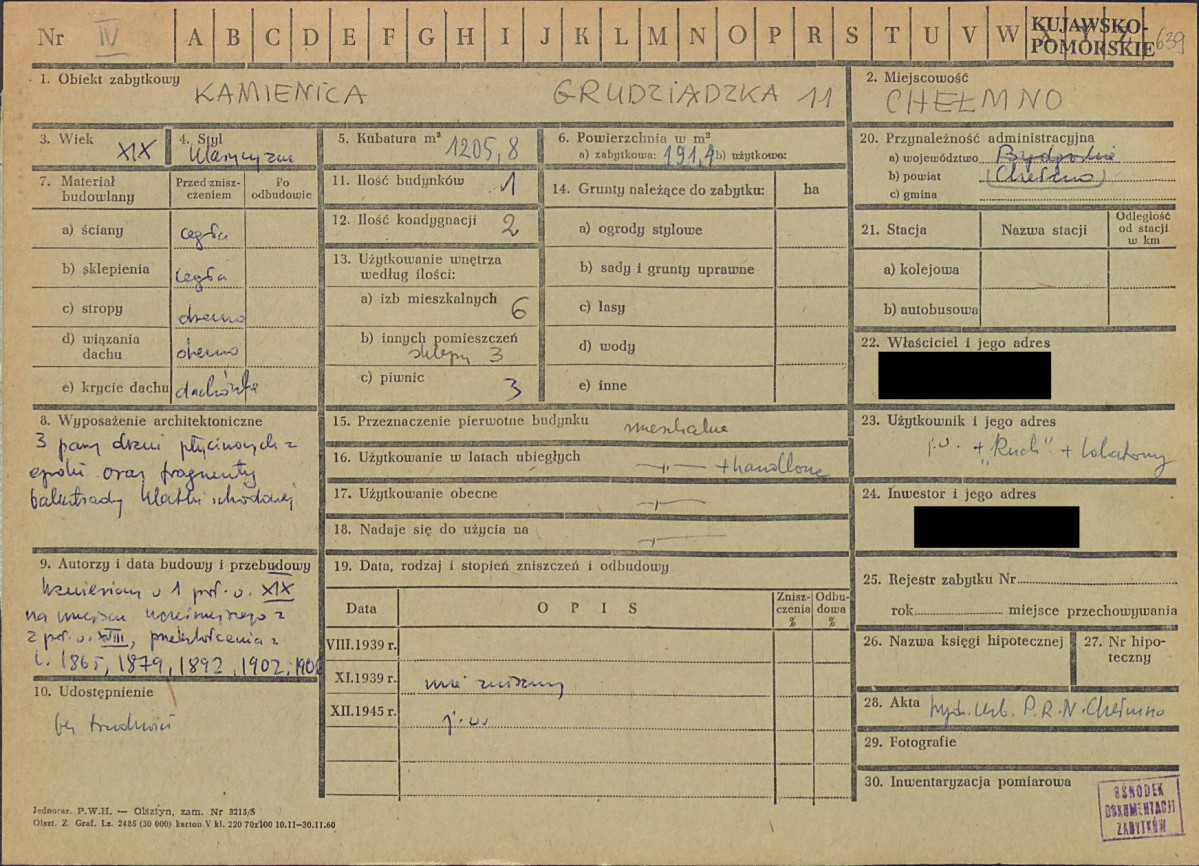 Nr IV A B C D E F G H I J K L M N O P R S T U V W X Y Z 639
KUJAWSKO-
POMORSKIE
1. Obiekt zabytkowy
KAMIENICA GRUDZIĄDZKA 11
2. Miejscowość
CHEŁMNO
3. Wiek
XIX
4. Styl
klasycyzm
5. Kubatura m³ 1205,8
6. Powierzchnia w m²
a) zabytkowa: 191,4 b) użytkowa:
7. Materiał
budowlany
Przed znisz-
czeniem
Po
odbudowie
a) ściany cegła
b) sklepienia cegła
c) stropy drewno
d) wiązania
dachu drewno
e) krycie dachu dachówka
8. Wyposażenie architektoniczne
3 pary drzwi płycinowych z
epoki oraz fragmenty
balustrady klatki schodowej
9. Autorzy i data budowy i przebudowy
Wzniesiony w 1 poł. w. XIX
na miejscu wcześniejszego z
2 poł. w. XVIII, przekształcenia z
l. 1865, 1879, 1892, 1902, 1906
10. Udostępnienie
bez trudności
11. Ilość budynków 1
12. Ilość kondygnacji 2
13. Użytkowanie wnętrza
według ilości:
a) izb mieszkalnych
6
b) innych pomieszczeń
sklepy 3
c) piwnic 3
14. Grunty należące do zabytku: ha
a) ogrody stylowe
b) sady i grunty uprawne
c) lasy
d) wody
e) inne
15. Przeznaczenie pierwotne budynku mieszkalne
16. Użytkowanie w latach ubiegłych —"— + handlowe
17. Użytkowanie obecne —"—
18. Nadaje się do użycia na —"—
19. Data, rodzaj i stopień zniszczeń i odbudowy
Data O P I S Znisz-
czenia
%
Odbu-
dowa
%
VIII.1939 r.
XI.1939 r. nie zniszczony
XII.1945 r. j.w.
20. Przynależność administracyjna
a) województwo Bydgoskie
b) powiat (Chełmno)
c) gmina
21. Stacja Nazwa stacji Odległość
od stacji
w km
a) kolejowa
b) autobusowa
22. Właściciel i jego adres
23. Użytkownik i jego adres
j.w. + "Ruch" + lokatorzy
24. Inwestor i jego adres
25. Rejestr zabytku Nr
rok miejsce przechowywania
26. Nazwa księgi hipotecznej
27. Nr hipo-
teczny
28. Akta P.R.N. Chełmno
29. Fotografie
30. Inwentaryzacja pomiarowa
OŚRODEK
DOKUMENTACJI
ZABYTKÓW
Jednoraz. P.W.H. — Olsztyn, zam. Nr 3215/S
Olszt. Z. Graf. Lz. 2485 (30 000) karton V kl. 220 70x100 10.11—30.11.60